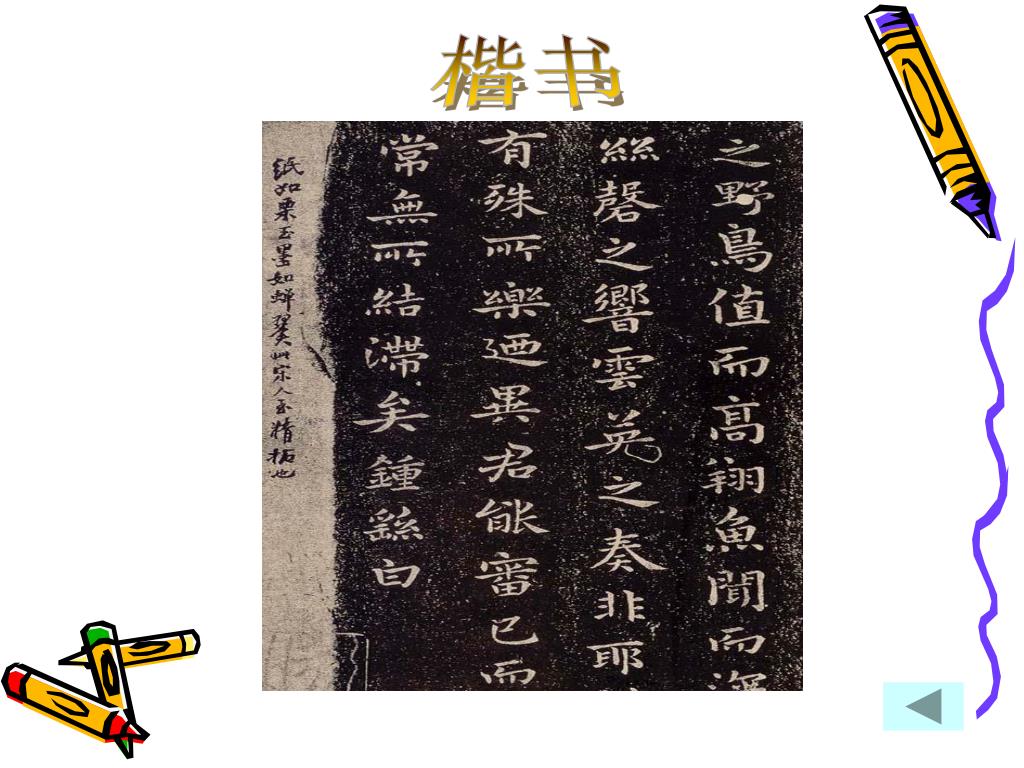 楷书
之野鳥值而高翔魚聞而深
絲磬之響雲英之奏非耶
有殊所樂迺異君能審已而
常無所結滯矣鍾繇白
紙如栗玉墨如蟬翼此宋人玉精拓也